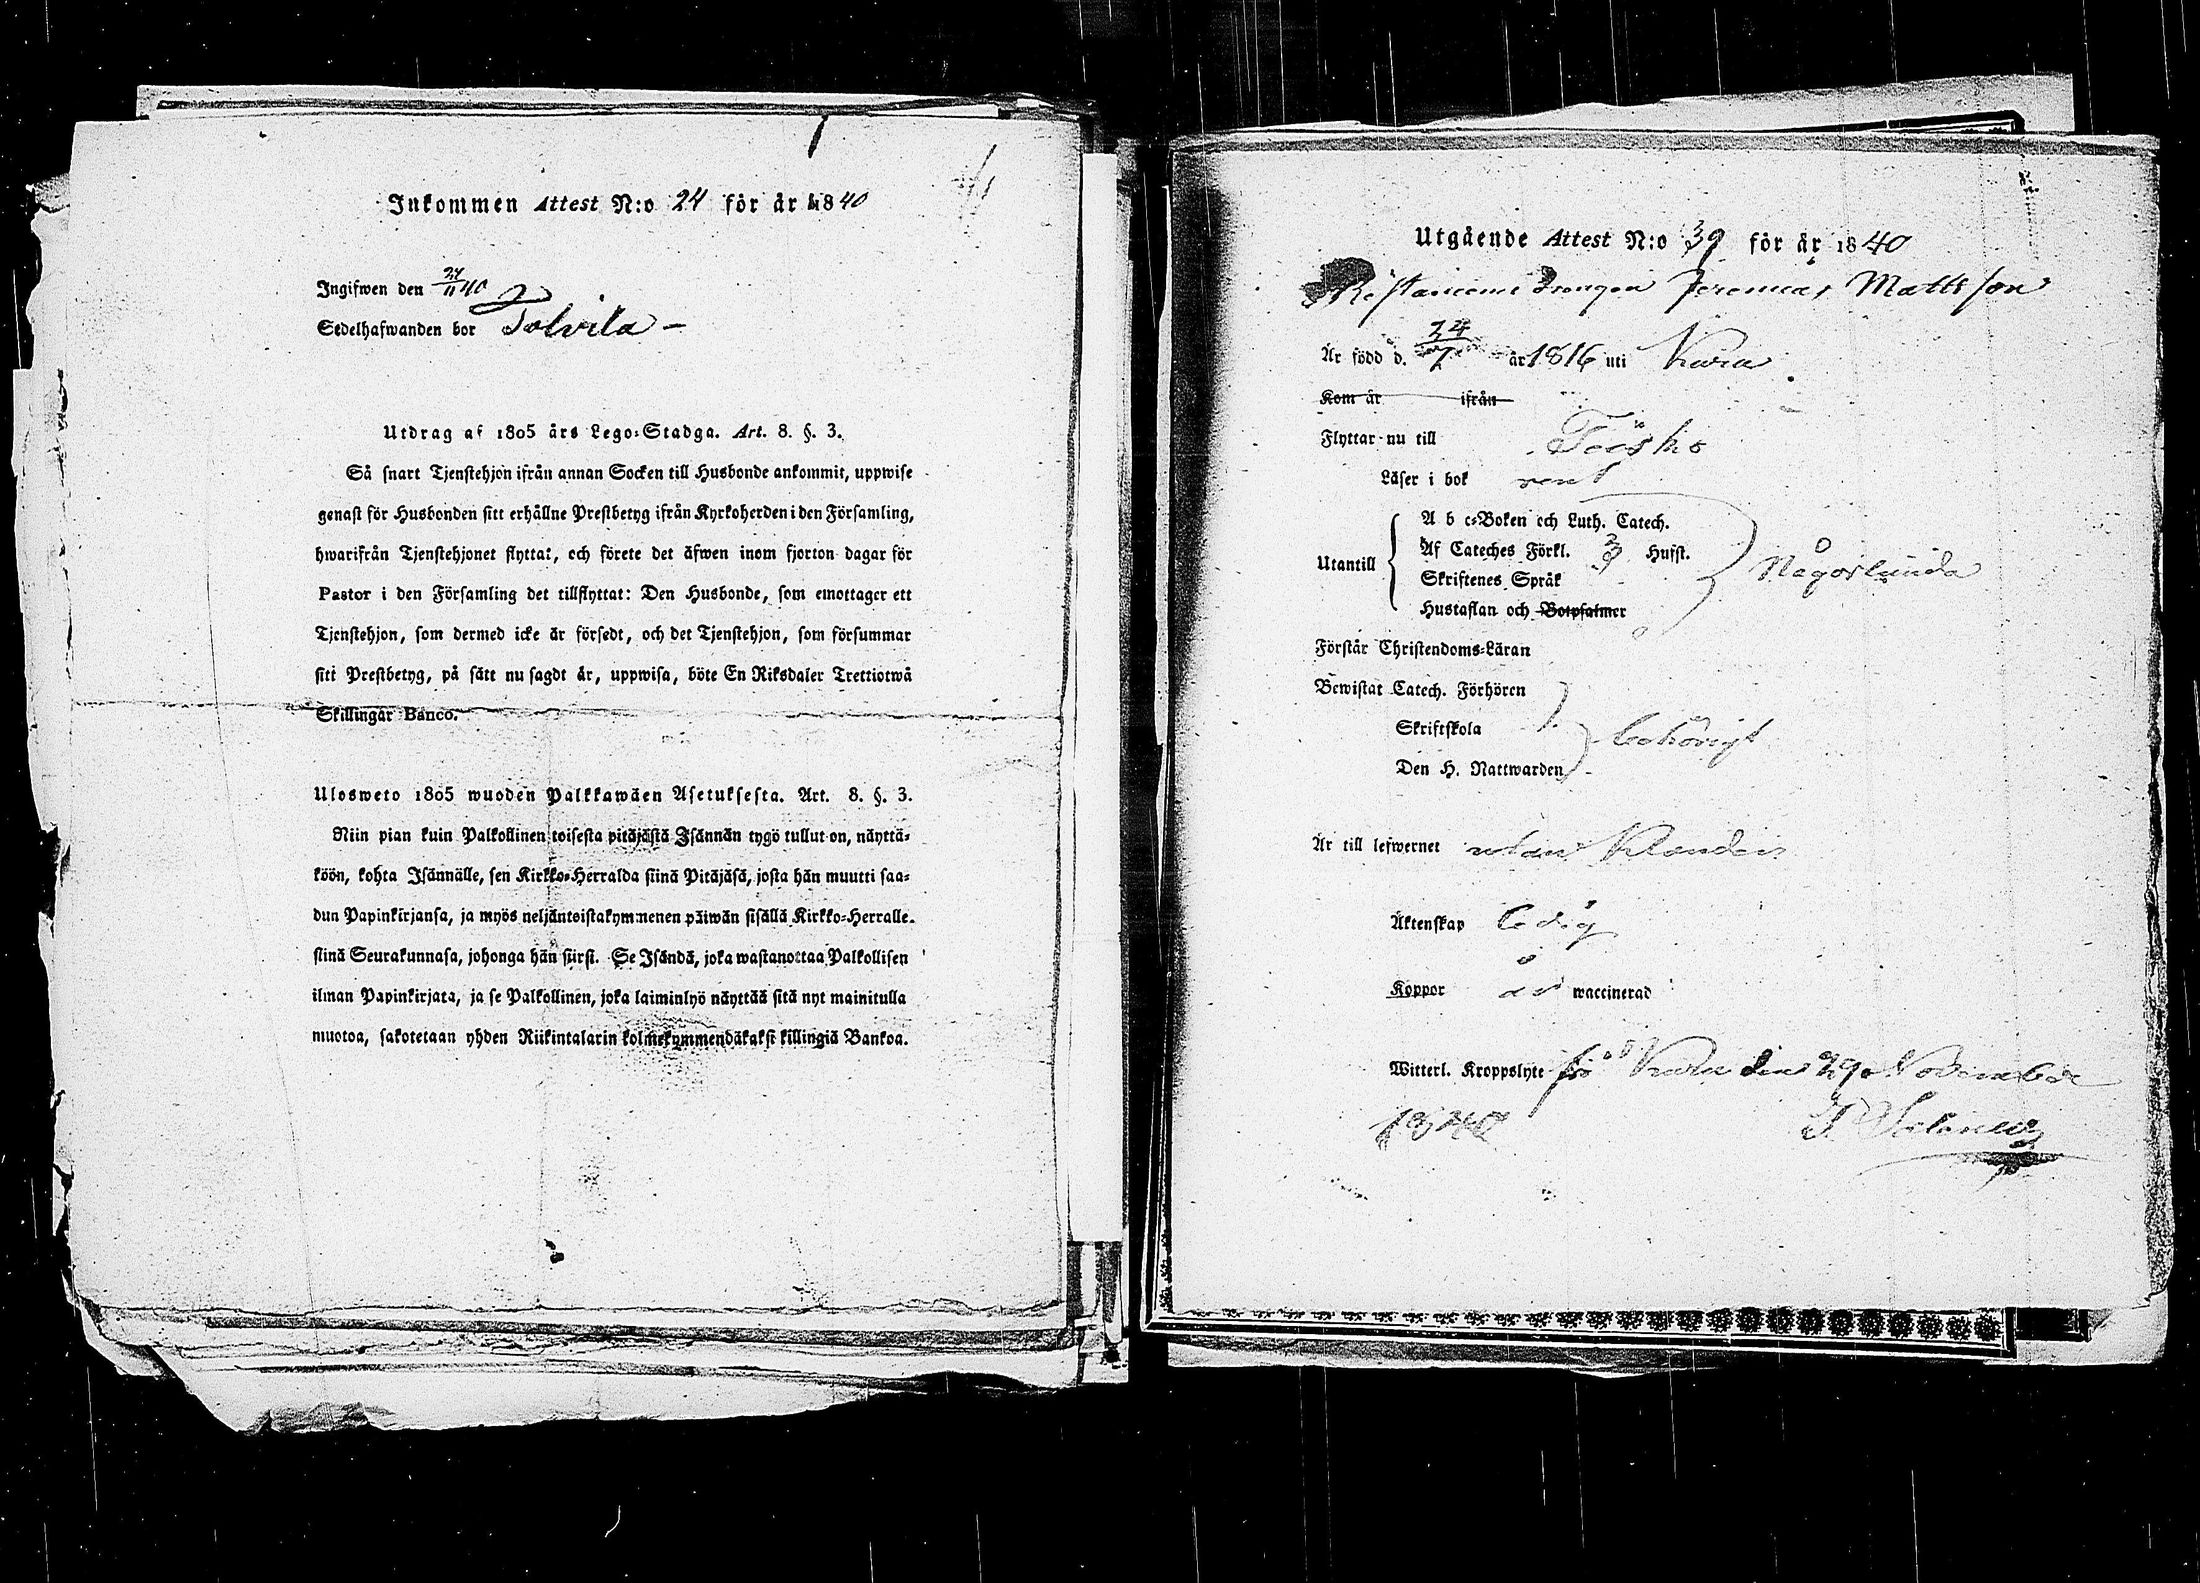 Inkommen Attest N:o 24 för år 1840
Ingifwen den 27/11 40
Sedelhafwanden bor Tolvila –
Utdrag af 1805 års Lego-Stadga. Art. 8. §. 3.
Så snart Tjenstehjon ifrån annan Socken till Husbonde ankommit, uppwise
genast för Husbonden sitt erhållne Prestbetyg ifrån Kyrkoherden i den Församling,
hwarifrån Tjenstehjonet flyttat, och förete det äfwen inom fjorton dagar för
Pastor i den Församling det tillflyttat: Den Husbonde, som emottager ett
Tjenstehjon, som dermed icke är försedt, och det Tjenstehjon, som försummar
sitt Prestbetyg, på sätt nu sagdt är, uppwisa, böte En Riksdaler Trettiotwå
Skillingar Banco.
Ulosweto 1805 wuoden Palkkawäen Asetuksesta. Art. 8. §. 3.
Niin pian kuin Palkollinen toisesta pitäjästä Isännän tygö tullut on, näyttä-
köön, kohta Isännälle, sen Kirkko-Herralda siinä Pitäjäsä, josta hän muutti saa-
dun Papinkirjansa, ja myös neljäntoistakymmenen päiwän sisällä Kirkko-Herralle.
siinä Seurakunnasa, johonga hän siirsi. Se Isändä, joka wastanottaa Palkollisen
ilman Papinkirjata, ja se Palkollinen, joka laiminlyö näyttää sitä nyt mainitulla
muotoa, sakotetaan yhden Riikintalarin kolmekymmendäkaksi killingiä Bankoa.
Utgående Attest N:o 39 för år 1840
drengen Jeremias Mattsson
Är född d. 24/7 år 1816 uti Kura
Kom år ifrån
Flyttar nu till
Läser i bok rent
Utantill
A b c-Boken och Luth. Catech.
Af Cateches Förkl. 3 Hufst.
Skriftenes Språk
Någorlunda
Hustaflan och Botpsalmer
Förstår Christendoms-Läran
Bewistat Catech. Förhören
Skriftskola
behörigt
Den H. Nattwarden
Är till lefwernet utan klander
Äktenskap ledig
Koppor är waccinerad
Witterl. Kroppslyte fri den 29 November
1840